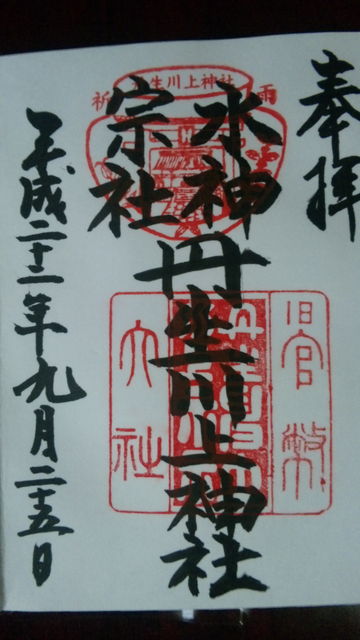 奉拝
水神
宗社
丹生川上神社
平成二十二年九月二十五日
丹生川上神社
祈雨
旧官幣
大社